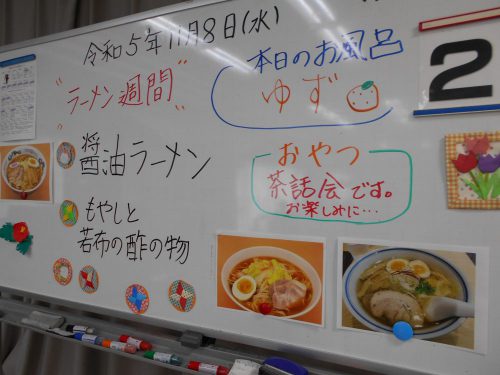 令和5年11月8日(水)
"ラーメン週間"
醤油ラーメン
もやしと
若布の酢の物
本日のお風呂
ゆず
おやつ
茶話会です。
お楽しみに…
2